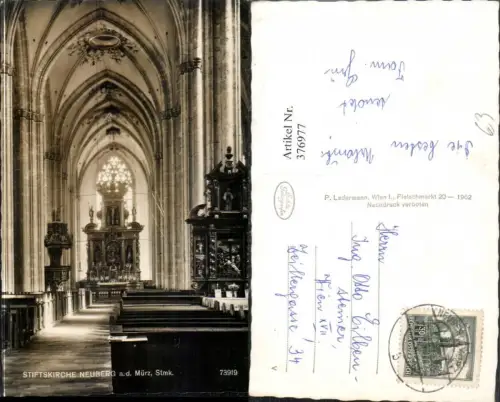 STIFTSKIRCHE NEUBERG a/d. Mürz, Stmk.
73919
Artikel Nr.
376977
P. Ledermann, Wien I., Fleischmarkt 20 — 1962
Nachdruck verboten
Die besten
sendet
Fam.
Herrn
Ing. Otto Eilben-
steiner,
Wien XVII
34